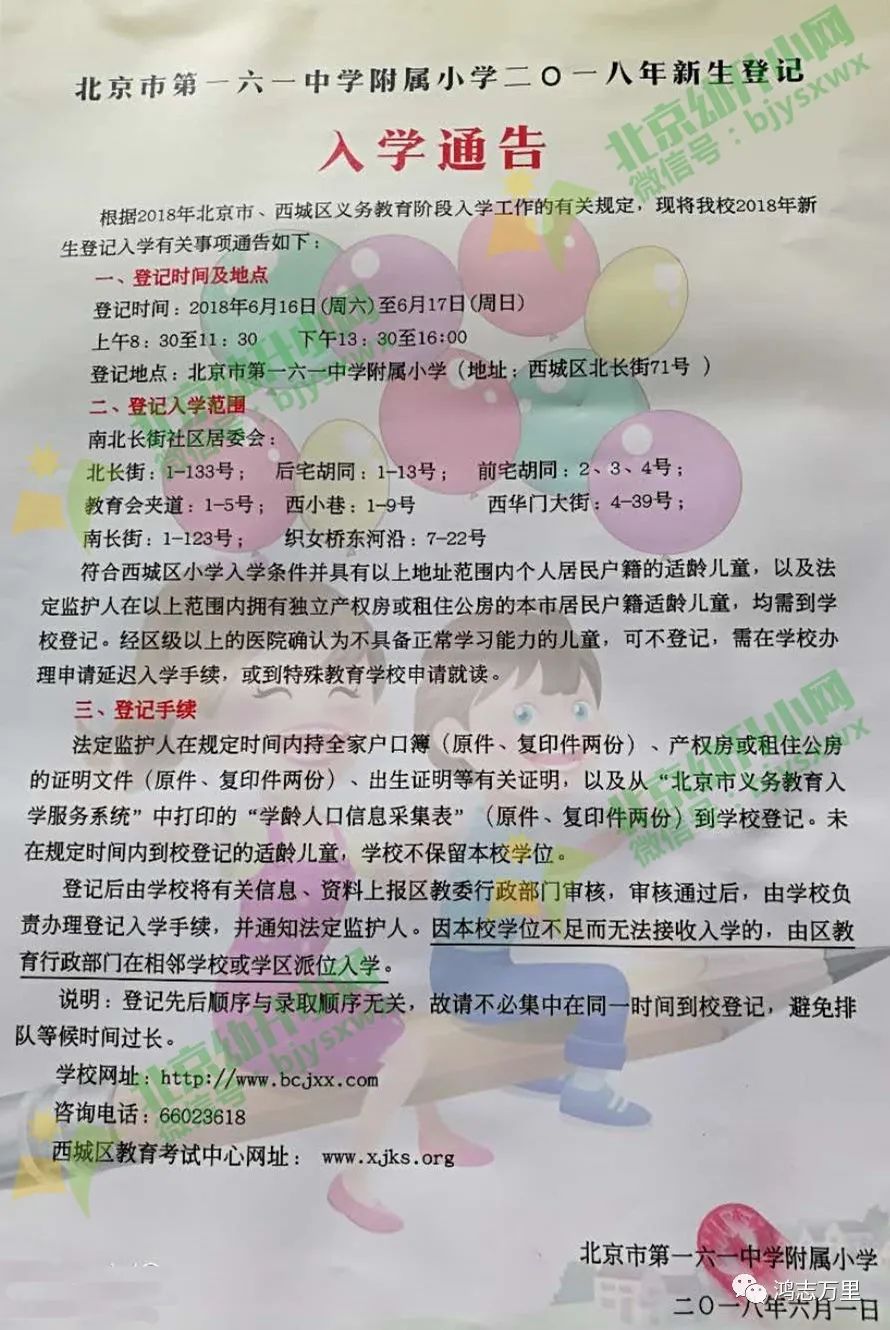 北京市第一六一中学附属小学二〇一八年新生登记
入学通告
根据2018年北京市、西城区义务教育阶段入学工作的有关规定，现将我校2018年新
生登记入学有关事项通告如下：
一、登记时间及地点
登记时间：2018年6月16日(周六)至6月17日(周日)
上午8：30至11：30 下午13：30至16:00
登记地点：北京市第一六一中学附属小学（地址：西城区北长街71号 ）
二、登记入学范围
南北长街社区居委会：
北长街：1-133号； 后宅胡同：1-13号； 前宅胡同：2、3、4号；
教育会夹道：1-5号； 西小巷：1-9号 西华门大街：4-39号；
南长街：1-123号； 织女桥东河沿：7-22号
符合西城区小学入学条件并具有以上地址范围内个人居民户籍的适龄儿童，以及法
定监护人在以上范围内拥有独立产权房或租住公房的本市居民户籍适龄儿童，均需到学
校登记。经区级以上的医院确认为不具备正常学习能力的儿童，可不登记，需在学校办
理申请延迟入学手续，或到特殊教育学校申请就读。
三、登记手续
法定监护人在规定时间内持全家户口簿（原件、复印件两份）、产权房或租住公房
的证明文件（原件、复印件两份）、出生证明等有关证明，以及从“北京市义务教育入
学服务系统”中打印的“学龄人口信息采集表”（原件、复印件两份）到学校登记。未
在规定时间内到校登记的适龄儿童，学校不保留本校学位。
登记后由学校将有关信息、资料上报区教委行政部门审核，审核通过后，由学校负
责办理登记入学手续，并通知法定监护人。因本校学位不足而无法接收入学的，由区教
育行政部门在相邻学校或学区派位入学。
说明：登记先后顺序与录取顺序无关，故请不必集中在同一时间到校登记，避免排
队等候时间过长。
学校网址：http://www.bcjxx.com
咨询电话：66023618
西城区教育考试中心网址： www.xjks.org
北京市第一六一中学附属小学
二〇一八年六月一日
北京幼升小网
微信号：bjysxwx
北京幼升小网
微信号：bjysxwx
北京幼升小网
微信号：bjysxwx
北京幼升小网
微信号：bjysxwx
鸿志万里